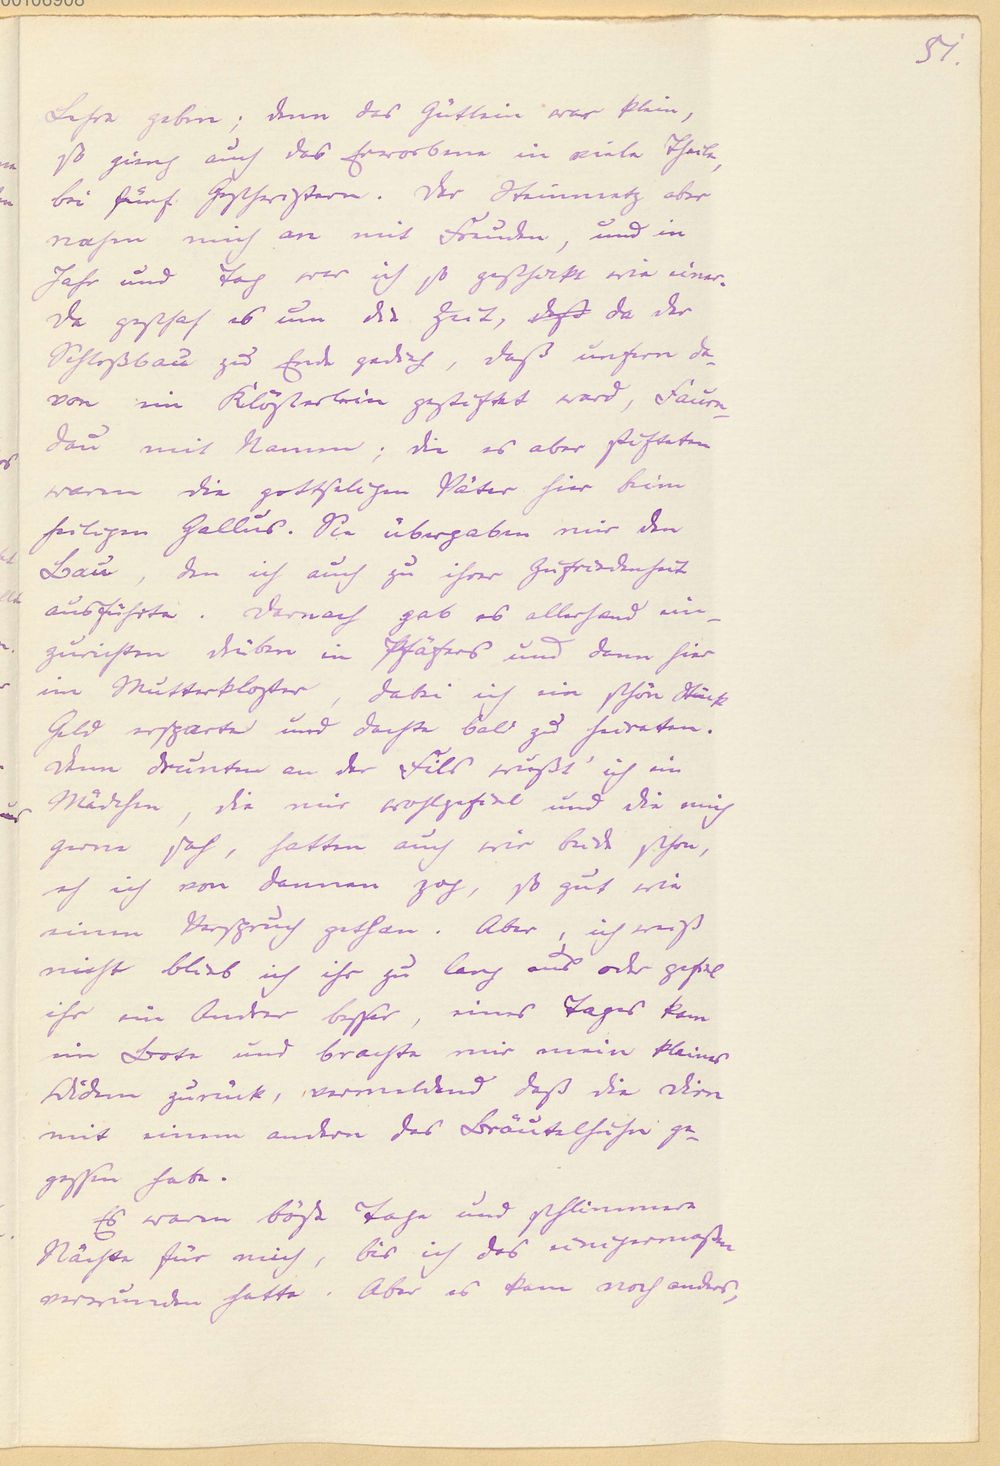 51.
Lehre geben; denn das Gütlein war klein,
so gieng auch das Erworbene in viele Theile,
bei fünf Geschwistern. Der Steinmetz aber
nahm mich an mit Freuden, und in
Jahr und Tag war ich so geschickt wie einer.
Da geschah es um die Zeit, daß da der
Schloßbau zu Ende gedieh, daß unfern da-
von ein Klösterlein gestiftet ward, Faurn-
dau mit Namen; die es aber stifteten
waren die gottseligen Väter hier beim
heiligen Gallus. Sie übergaben mir den
Bau, den ich auch zu ihrer Zufriedenheit
ausführte. Darnach gab es allerhand ein-
zurichten drüben in Pfäfers und dann hier
im Mutterkloster, dabei ich ein schön Stück
Geld ersparte und dachte bald zu heiraten.
Denn drunten an der Fils wußt' ich ein
Mädchen, die mir wohlgefiel und die mich
gerne sah, hatten auch wir beide schon,
eh ich von dannen zog, so gut wie
einen Verspruch gethan. Aber, ich weiß
nicht blieb ich ihr zu lang aus oder gefiel
ihr ein Andrer besser, eines Tages kam
ein Bote und brachte mir mein kleines
Widem zurück, vermeldend daß die Dirn
mit einem andern das Bräutelhuhn ge-
gessen habe.
Es waren böse Tage und schlimmere
Nächte für mich, bis ich das einigermaßen
verwunden hatte. Aber es kam noch anders,